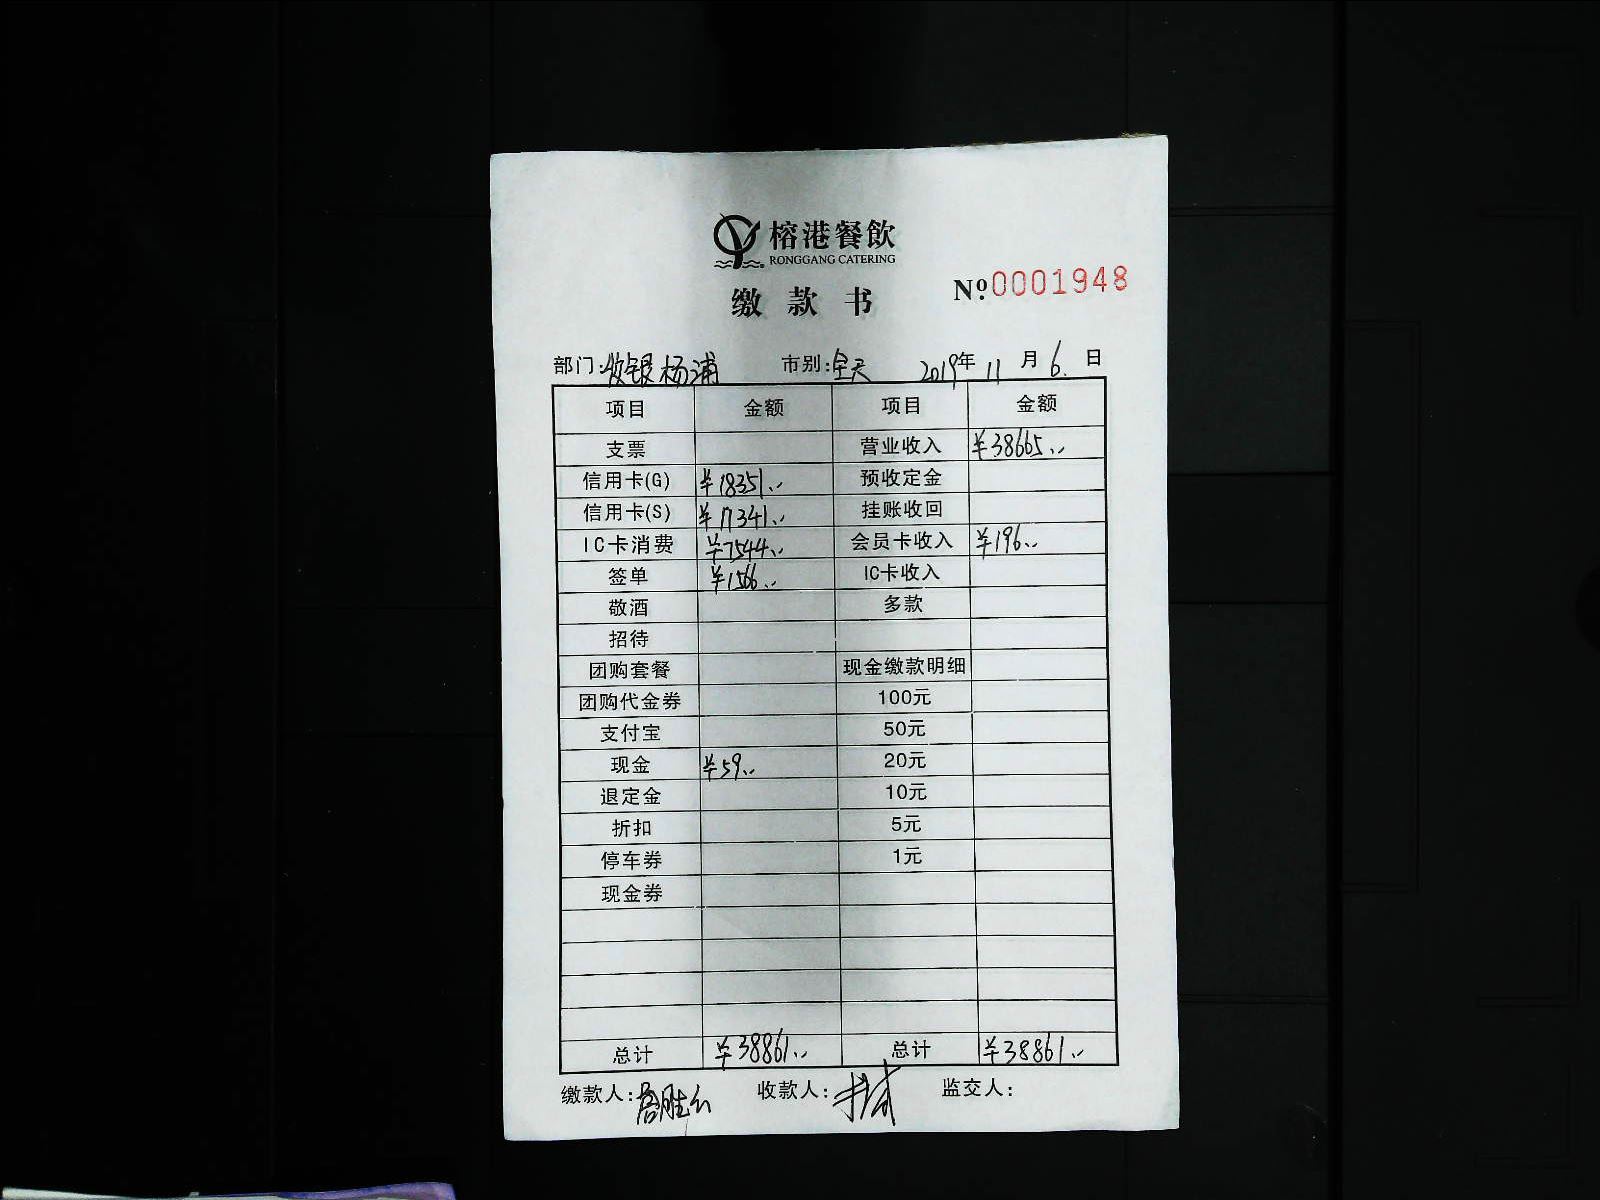 榕港餐飲
RONGGANG CATERING
缴款书
№.0001948
部门:收银杨浦 市别:全天 2019年11月6日
项目 金额 项目 金额
支票 营业收入 ¥38665..
信用卡(G) ¥18351.. 预收定金
信用卡(S) ¥17341.. 挂账收回
IC卡消费 ¥1544.. 会员卡收入 ¥196..
签单 ¥1566.. IC卡收入
敬酒 多款
招待
团购套餐 现金缴款明细
团购代金券 100元
支付宝 50元
现金 ¥59.. 20元
退定金 10元
折扣 5元
停车券 1元
现金券
总计 ¥38861.. 总计 ¥38861..
缴款人: 收款人: 监交人: